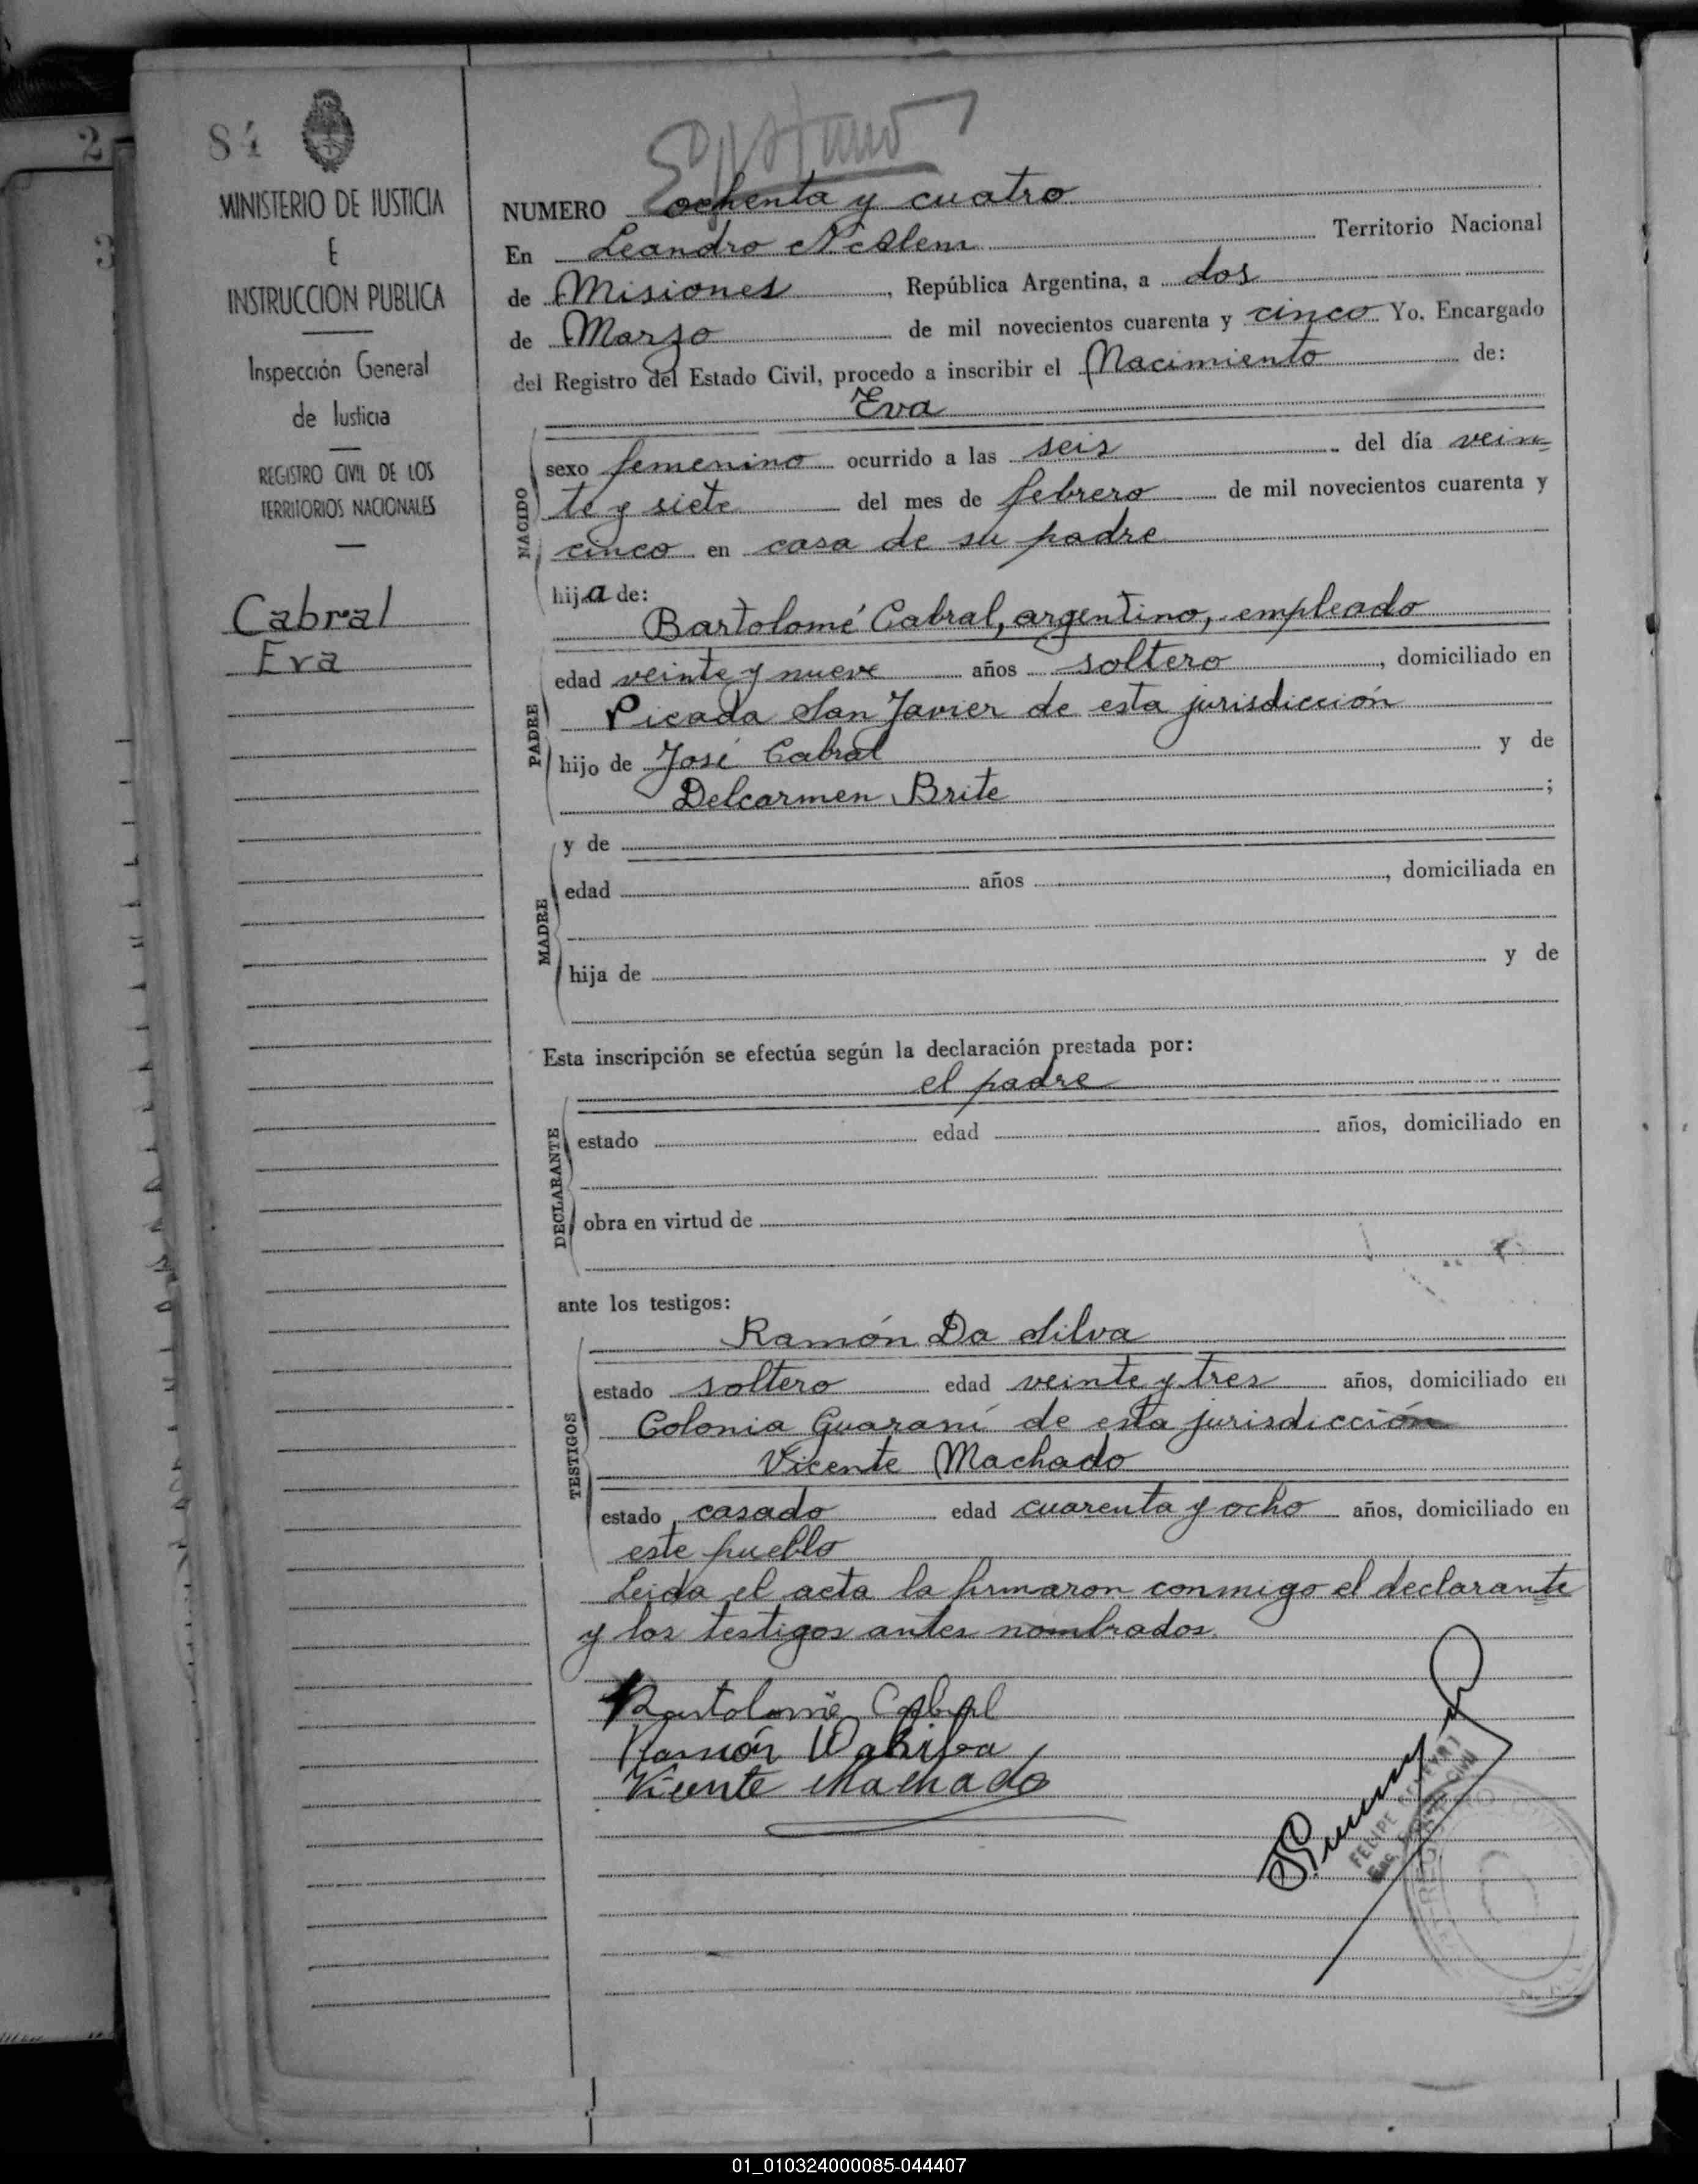 84
MINISTERIO DE JUSTICIA
E
INSTRUCCION PUBLICA
Inspección General
de Justicia
REGISTRO CIVIL DE LOS
TERRITORIOS NACIONALES
Cabral
Eva
NUMERO ochenta y cuatro
En Leandro N Alem Territorio Nacional
de Misiones, República Argentina, a dos
de Marzo de mil novecientos cuarenta y cinco Yo, Encargado
del Registro del Estado Civil, procedo a inscribir el Nacimiento de:
Eva
NACIDO
sexo femenino ocurrido a las seis del día vein=
te y siete del mes de febrero de mil novecientos cuarenta y
cinco en casa de su padre
hija de:
Bartolomé Cabral, argentino, empleado
PADRE
edad veinte y nueve años soltero, domiciliado en
Picada San Javier de esta jurisdicción
hijo de José Cabral y de
Delcarmen Brite;
MADRE
y de
edad años, domiciliada en
hija de y de
Esta inscripción se efectúa según la declaración prestada por:
el padre
DECLARANTE
estado edad años, domiciliado en
obra en virtud de
ante los testigos:
Ramón Da Silva
TESTIGOS
estado soltero edad veinte y tres años, domiciliado en
Colonia Guaraní de esta jurisdicción
Vicente Machado
estado casado edad cuarenta y ocho años, domiciliado en
este pueblo
Leida el acta la firmaron conmigo el declarante
y los testigos antes nombrados.
Bartolomé Cabral
Ramón
Vicente Machado
FELIPE
01_010324000085-044407